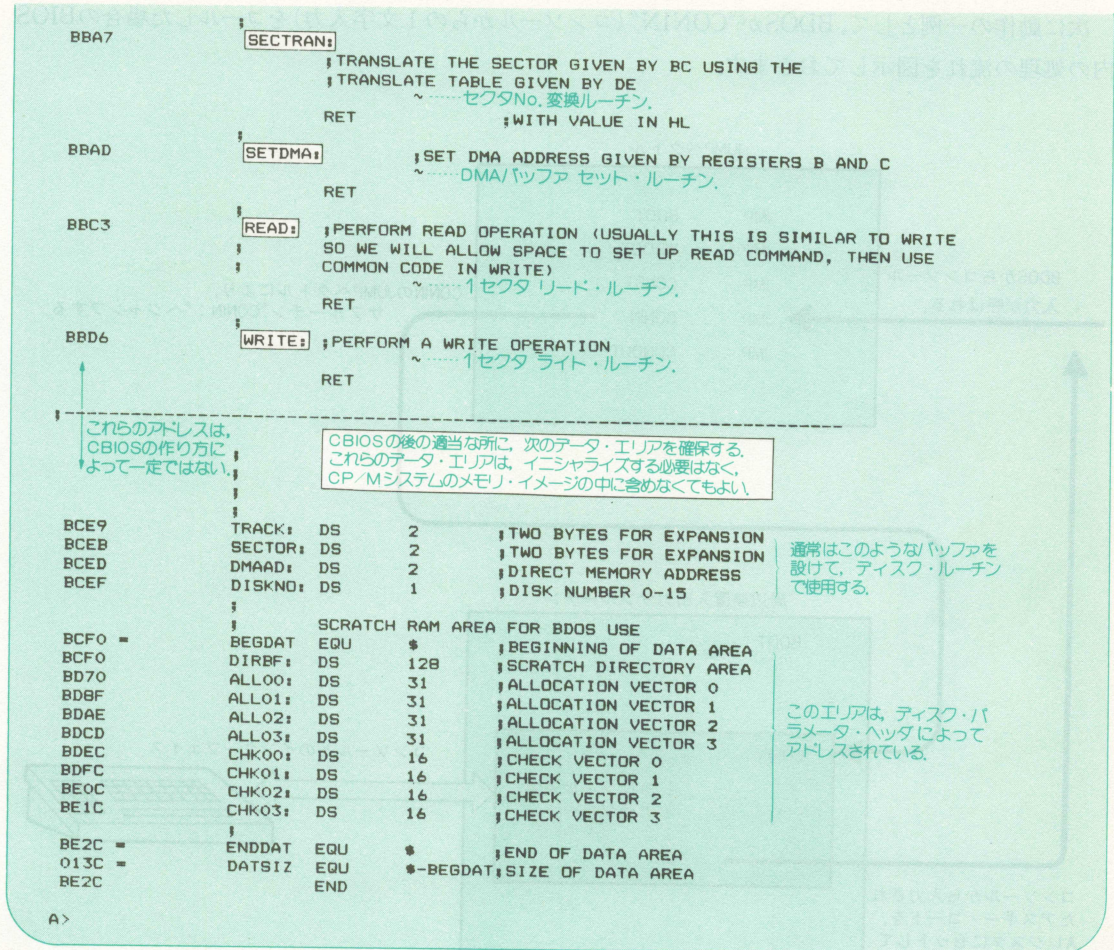 BBA7 ;
SECTRAN:
;TRANSLATE THE SECTOR GIVEN BY BC USING THE
;TRANSLATE TABLE GIVEN BY DE
~ ……セクタNo.変換ルーチン.
RET ;WITH VALUE IN HL
;
BBAD SETDMA: ;SET DMA ADDRESS GIVEN BY REGISTERS B AND C
~ ……DMAバッファ セット・ルーチン.
RET
;
BBC3 READ: ;PERFORM READ OPERATION (USUALLY THIS IS SIMILAR TO WRITE
; SO WE WILL ALLOW SPACE TO SET UP READ COMMAND, THEN USE
; COMMON CODE IN WRITE)
~ ……1セクタ リード・ルーチン.
RET
;
BBD6 WRITE: ;PERFORM A WRITE OPERATION
~ ……1セクタ ライト・ルーチン.
RET
;------------------------------------------------------------
これらのアドレスは,
CBIOSの作り方に
よって一定ではない.
CBIOSの後の適当な所に, 次のデータ・エリアを確保する.
これらのデータ・エリアは, イニシャライズする必要はなく,
CP/Mシステムのメモリ・イメージの中に含めなくてもよい.
;
;
;
;
;
BCE9 TRACK: DS 2 ;TWO BYTES FOR EXPANSION
BCEB SECTOR: DS 2 ;TWO BYTES FOR EXPANSION
BCED DMAAD: DS 2 ;DIRECT MEMORY ADDRESS
BCEF DISKNO: DS 1 ;DISK NUMBER 0-15
通常はこのようなバッファを
設けて, ディスク・ルーチン
で使用する.
;
; SCRATCH RAM AREA FOR BDOS USE
BCF0 = BEGDAT EQU $ ;BEGINNING OF DATA AREA
BCF0 DIRBF: DS 128 ;SCRATCH DIRECTORY AREA
BD70 ALL00: DS 31 ;ALLOCATION VECTOR 0
BD8F ALL01: DS 31 ;ALLOCATION VECTOR 1
BDAE ALL02: DS 31 ;ALLOCATION VECTOR 2
BDCD ALL03: DS 31 ;ALLOCATION VECTOR 3
BDEC CHK00: DS 16 ;CHECK VECTOR 0
BDFC CHK01: DS 16 ;CHECK VECTOR 1
BE0C CHK02: DS 16 ;CHECK VECTOR 2
BE1C CHK03: DS 16 ;CHECK VECTOR 3
このエリアは, ディスク・パ
ラメータ・ヘッダによって
アドレスされている.
;
BE2C = ENDDAT EQU $ ;END OF DATA AREA
013C = DATSIZ EQU $-BEGDAT;SIZE OF DATA AREA
BE2C END
A>